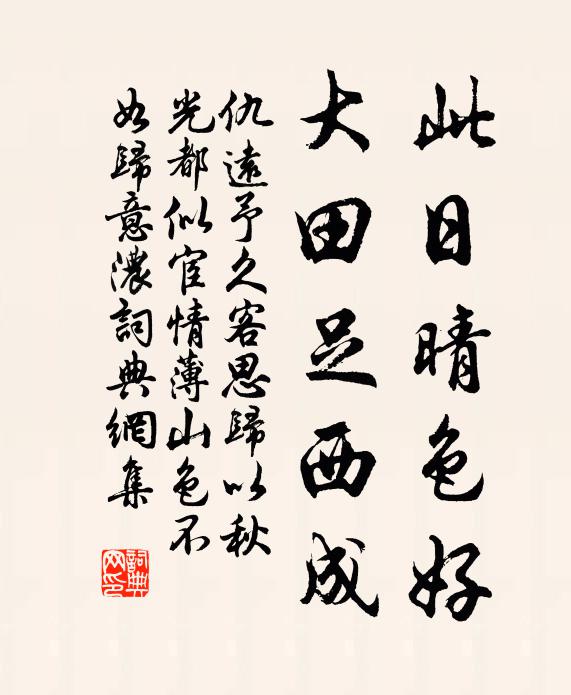 此日晴色好
大田足西成
仇遠予久客思歸以秋
光都似宦情薄山色不
如歸意濃詞典網集
詞典网印